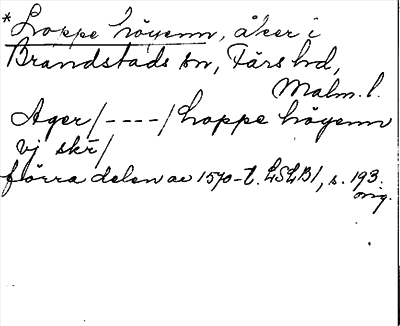 *Loppe höyenn, åker i
Brandstads sn, Färs hd,
Malm. l.
Ager/----/Loppe höyenn
vj skr/
förra delen av 1570-t. LSLB1, s. 193.
orig.